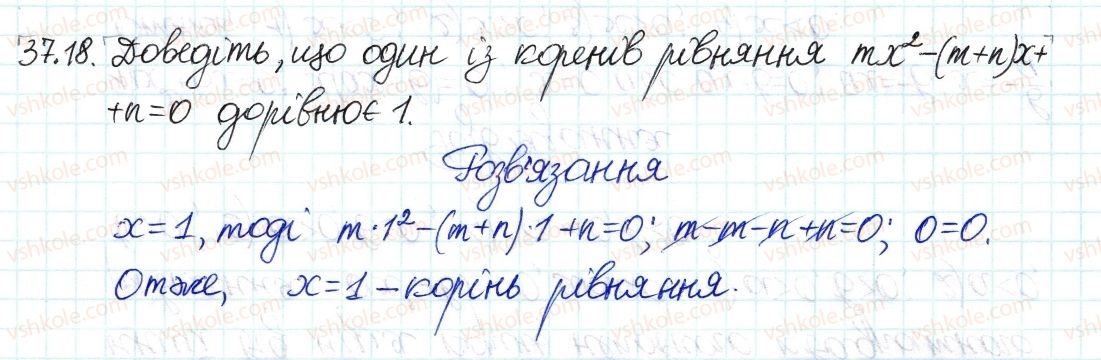 37.18. Доведіть, що один із коренів рівняння mx²-(m+n)x+
+n=0 дорівнює 1.
Розв'язання
x=1, тоді m·1²-(m+n)·1+n=0; m-m-n+n=0; 0=0.
Отже, x=1 - корінь рівняння.